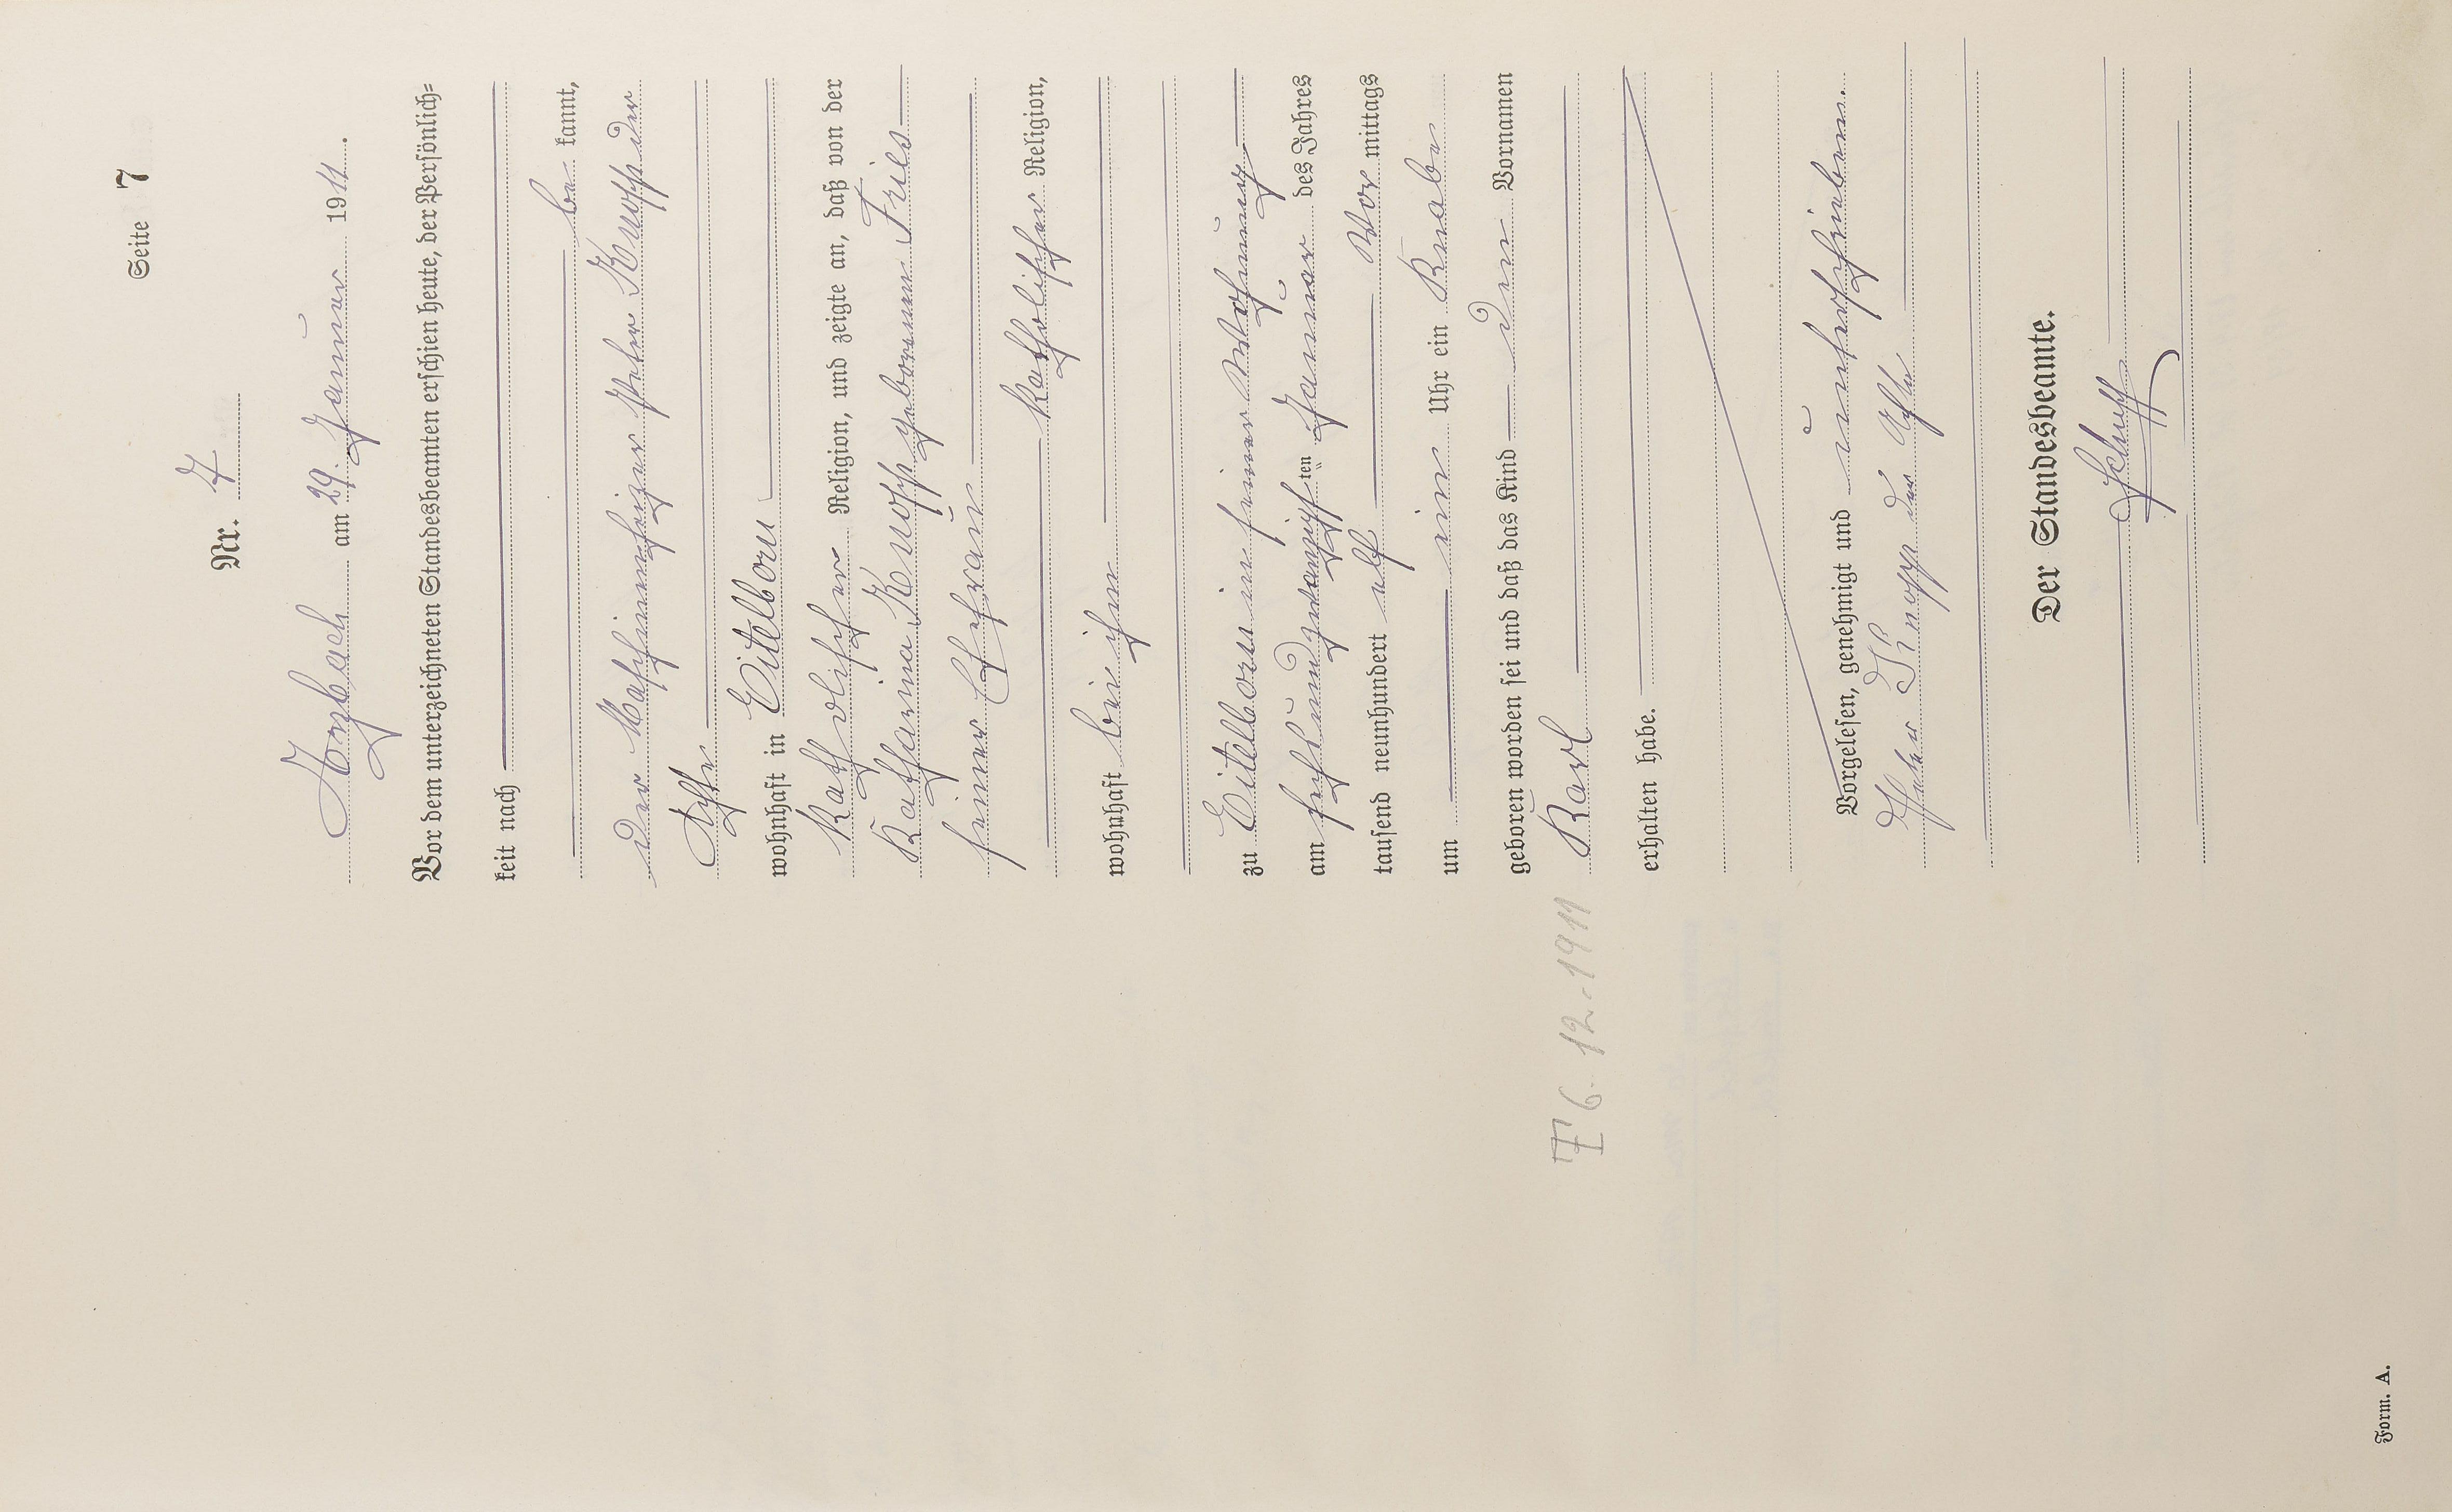 Seite 7
Nr. 7
Arzbach am 29. Januar 1911.
Vor dem unterzeichneten Standesbeamten erschien heute, der Persönlich=
keit nach
be kannt,
der Maschinenheizer Peter Knopp der
Achte
wohnhaft in Eitelborn
Katholischer Religion, und zeigte an, daß von der
Katharina Knopp geborenen Fries
seiner Ehefrau
katholischer Religion,
wohnhaft bei ihm
zu Eitelborn in seiner Wohnung
am sechsundzwanzigsten Januar des Jahres
tausend neunhundert elf Vor mittags
um ein Uhr ein Knabe
geboren worden sei und daß das Kind den Vornamen
Karl
† 6.12.1911
erhalten habe.
Vorgelesen, genehmigt und unterschrieben.
Peter Knopp der 8te
Der Standesbeamte.
Form. A.